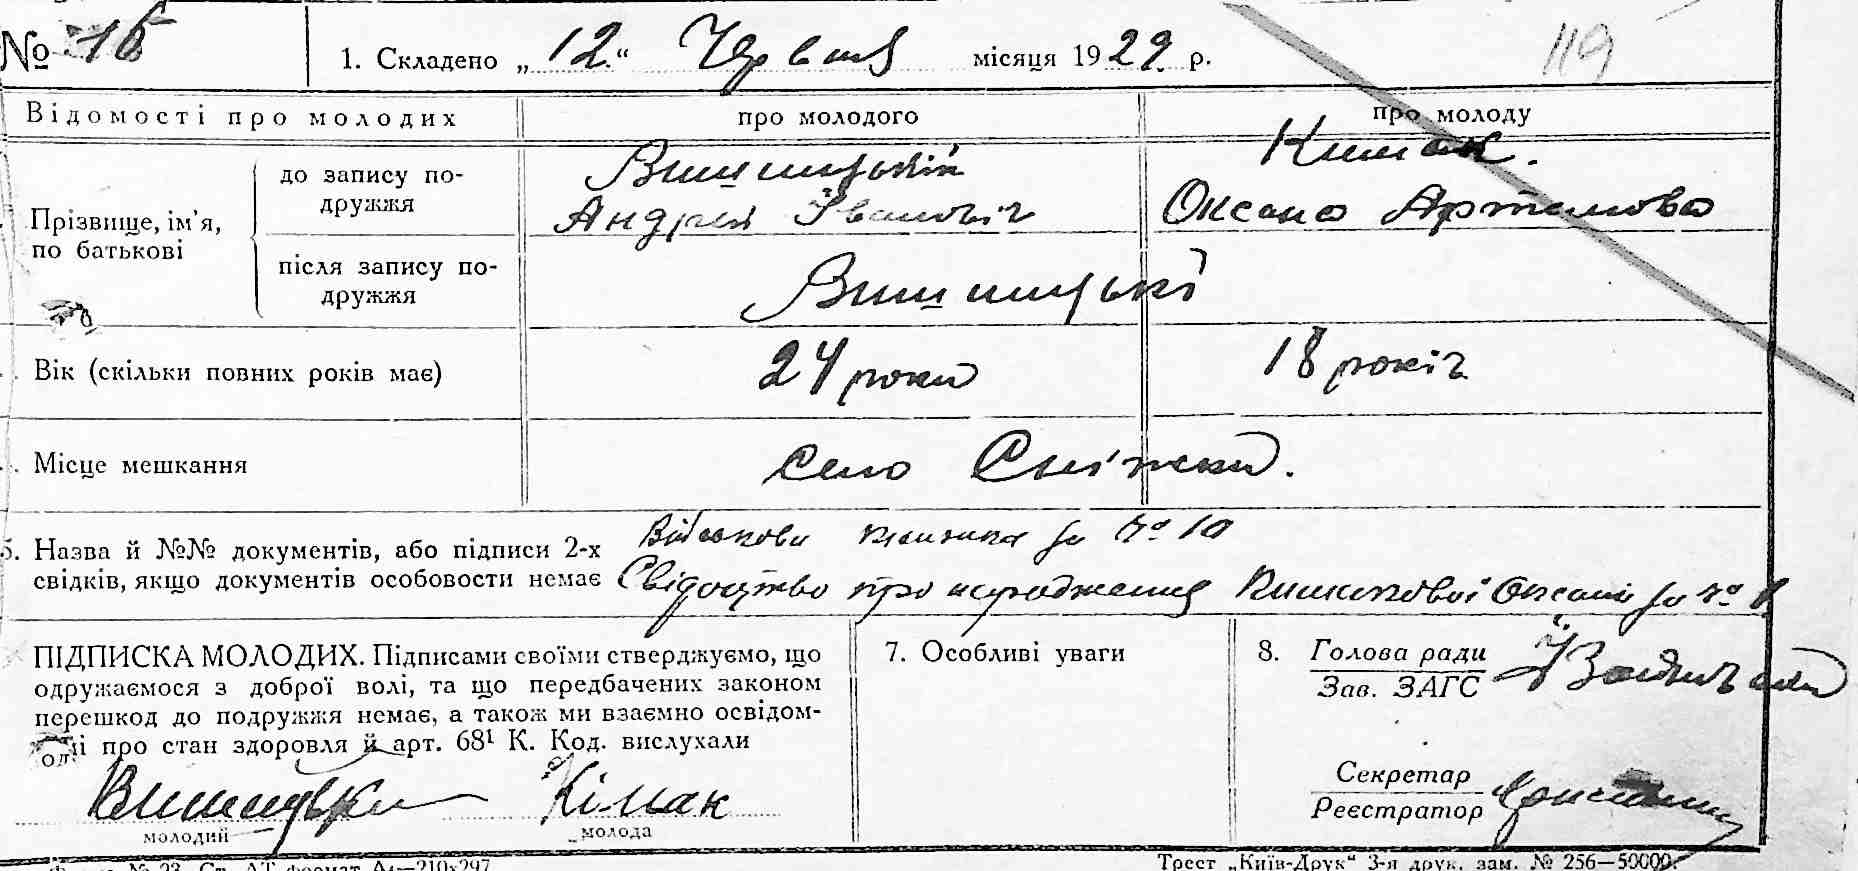 № 16
1. Складено „12“ Червня місяця 1929 р.
119
Відомості про молодих
про молодого
про молоду
Прізвище, ім'я, по батькові
до запису подружжя
Вишницький
Андрея Іванович
Кимак.
Оксана Артемова
після запису подружжя
Вишницькі
Вік (скільки повних років має)
24 роки
18 років
Місце мешкання
село Сніжки.
5. Назва й №№ документів, або підписи 2-х
свідків, якщо документів особовости немає
Військова книжка за № 10
Свідоцтво про народження Оксани за №
ПІДПИСКА МОЛОДИХ. Підписами своїми стверджуємо, що
одружаємося з доброї волі, та що передбачених законом
перешкод до подружжя немає, а також ми взаємно освідом-
лені про стан здоровля й арт. 68¹ К. Код. вислухали
Кімак
молодий
молода
7. Особливі уваги
8. Голова ради
Зав. ЗАГС
Секретар
Реєстратор
Форма № 23. Ст. АТ формат А4—210х297
Трест „Київ-Друк“ 3-я друк. зам. № 256—50000.